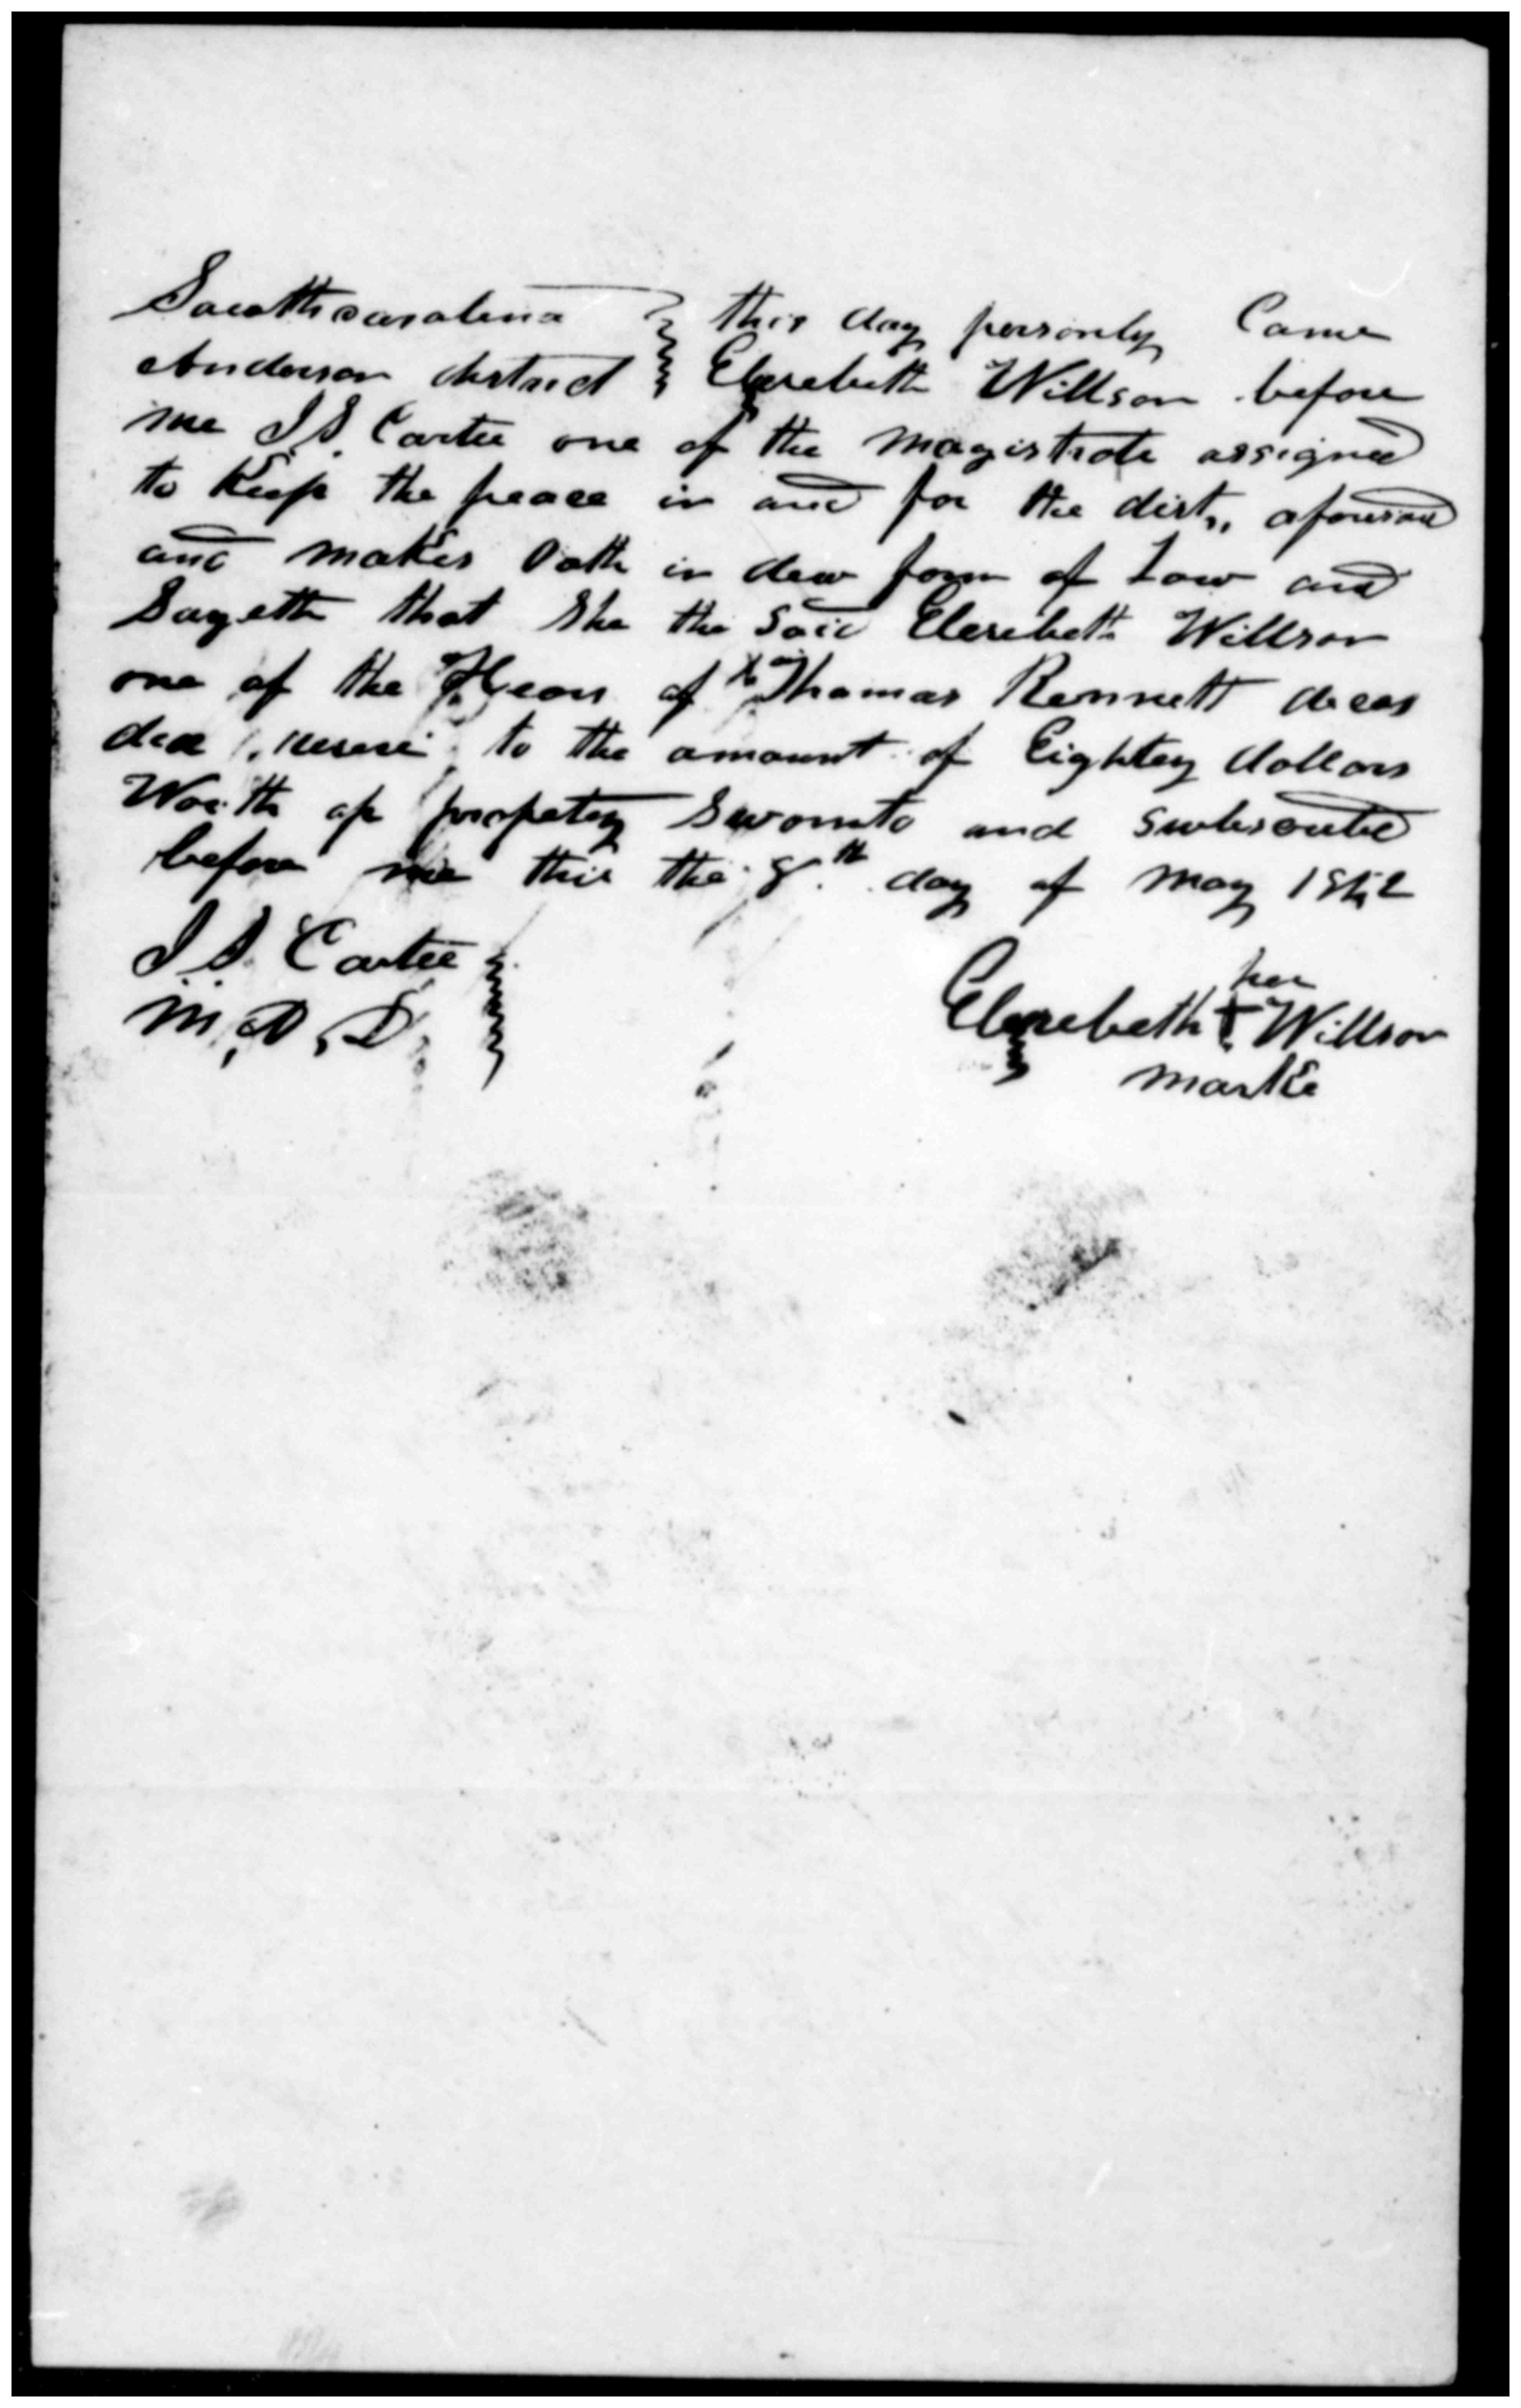 Southcarolina } this day personly Came
Anderson district } Elezebeth Willson before
me J S. Carter one of the magistrate assigned
to Keep the peace in and for the dist,, aforsaid
and makes Oath in dew form of Law and
Sayeth that She the Said Elezebeth Willson
one of the Heors of Thomas Rennett deceas
ded to the amount of Eightey dollars
Worth of propetey Swornto and subscribed
before me this the 8.th day of may 1852
J. S. Carter
M, A, D,
her
Elezebeth + Willson
marke